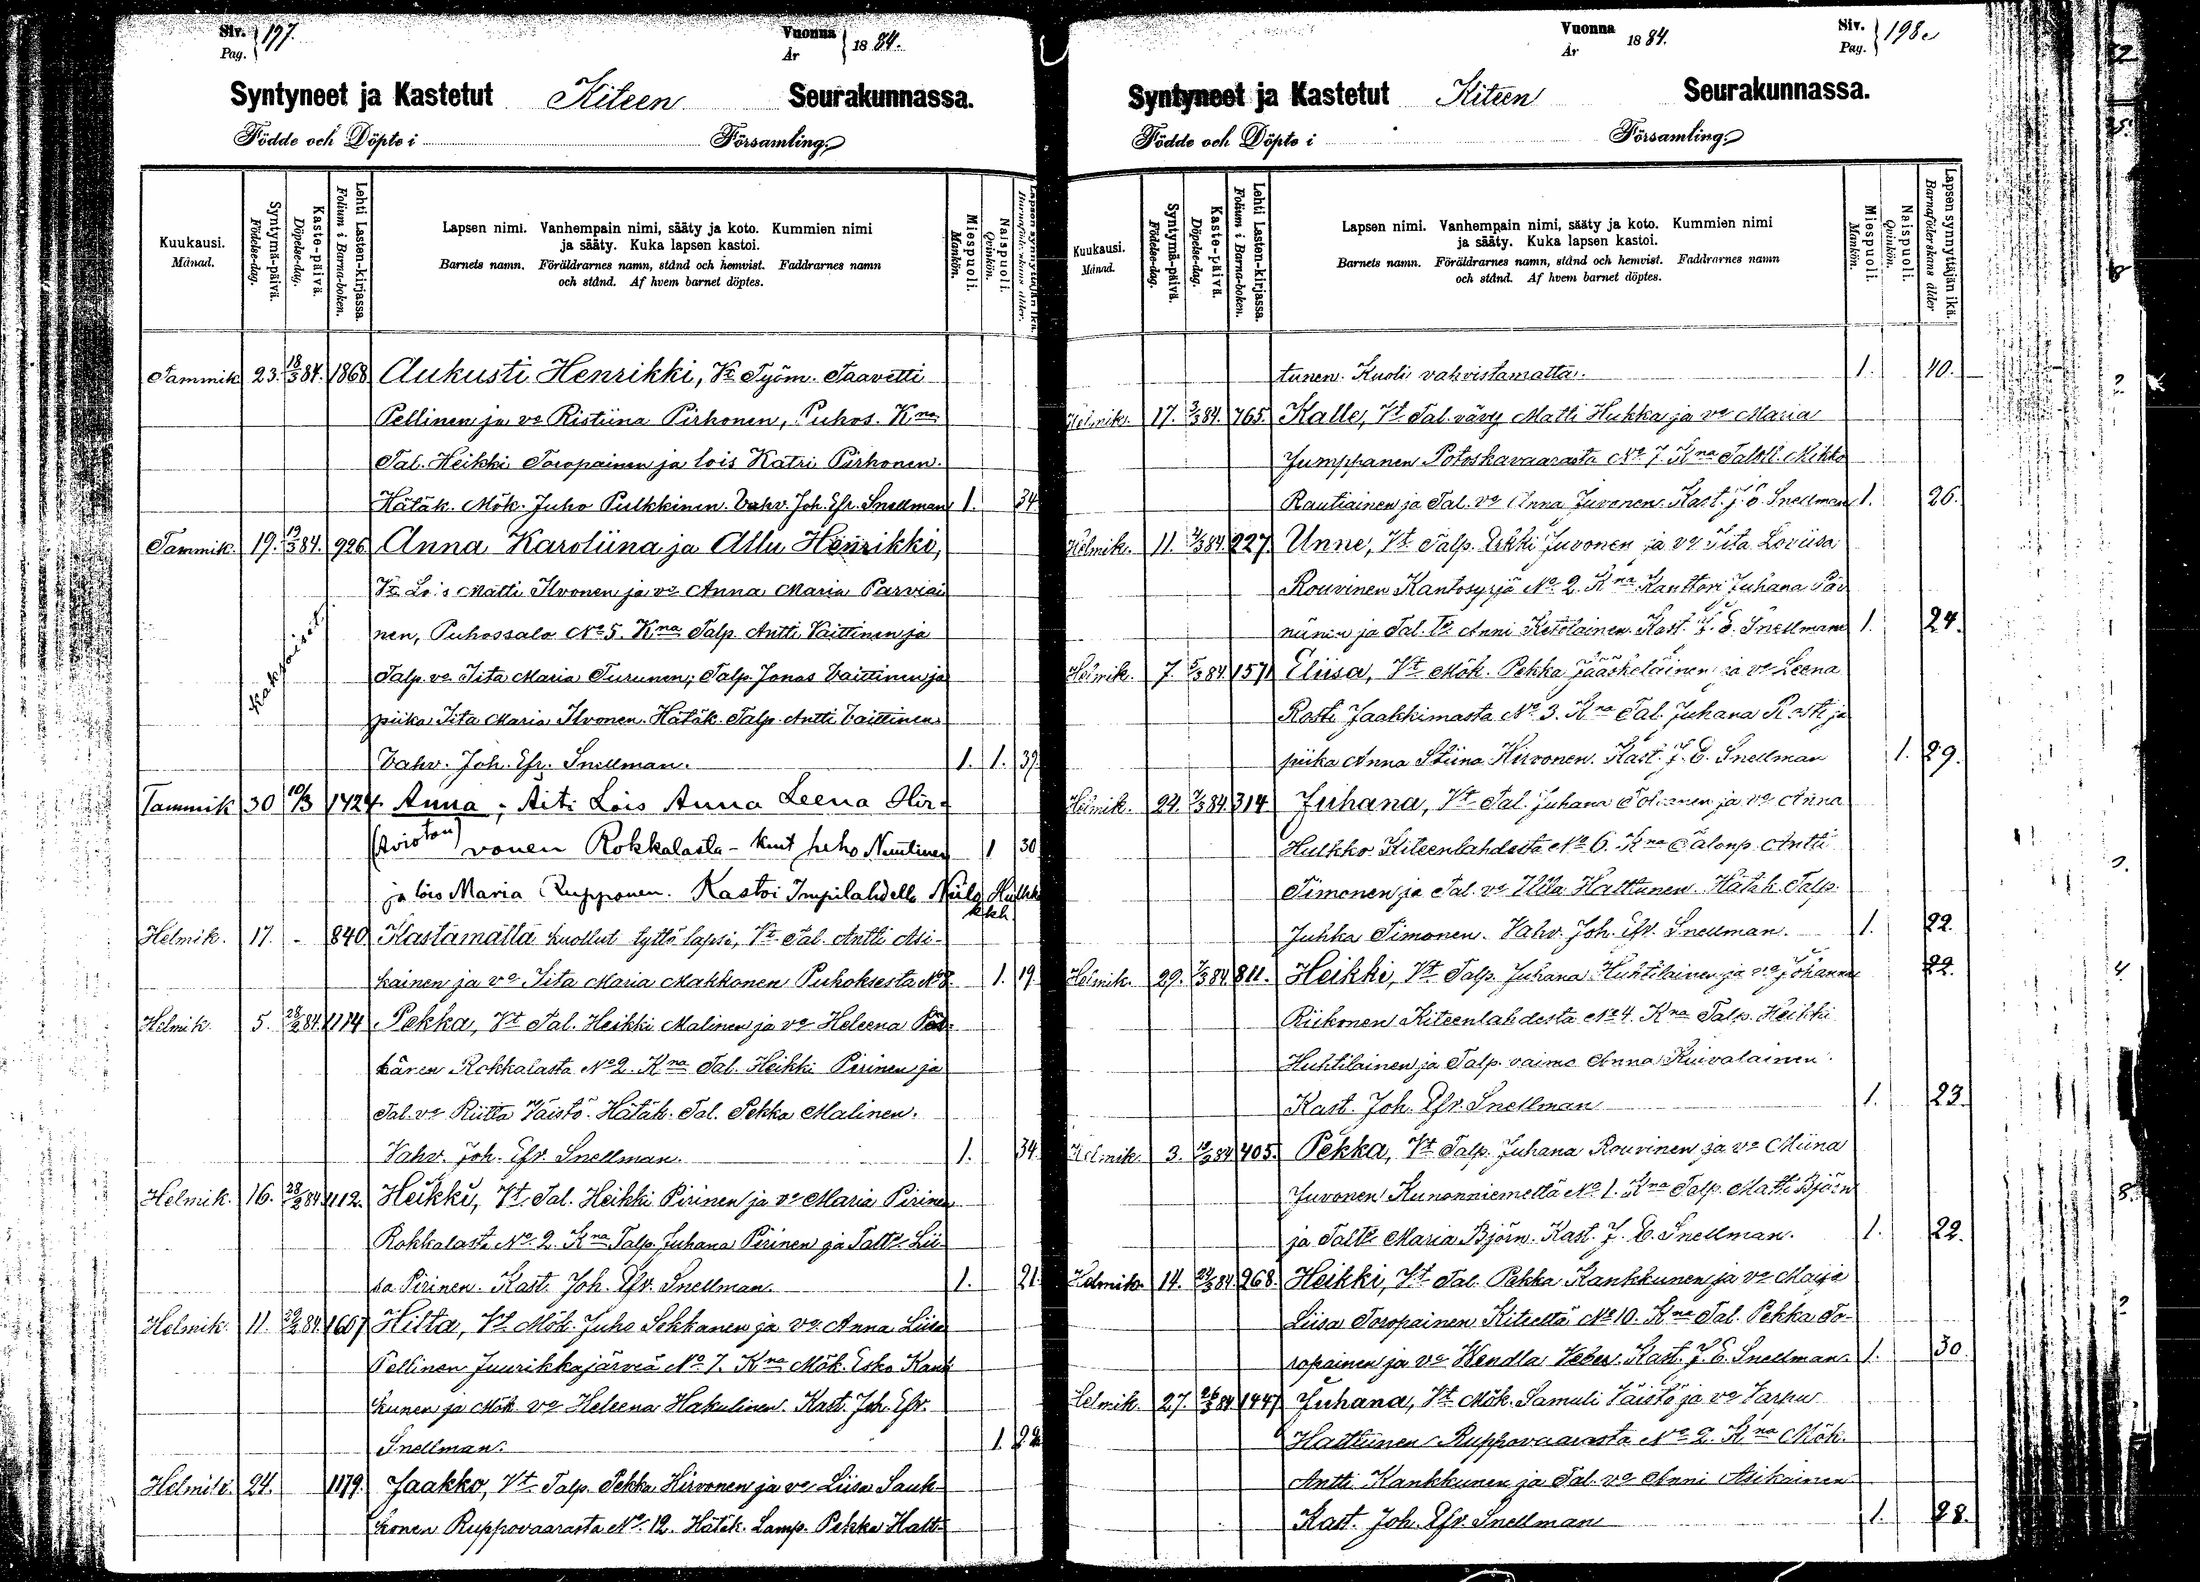 Siv. Pag. 197. Vuonna År 1884.
Syntyneet ja Kastetut Kiteen Seurakunnassa.
Födde och Döpte i Församling.
Kuukausi. Månad.
Syntymä-päivä. Födelse-dag.
Kaste-päivä. Döpelse-dag.
Lehti Lasten-kirjassa. Folium i Barna-boken.
Lapsen nimi. Vanhempain nimi, sääty ja koto. Kummien nimi
ja sääty. Kuka lapsen kastoi.
Barnets namn. Föräldrarnes namn, stånd och hemvist. Faddrarnes namn
och stånd. Af hvem barnet döptes.
Miespuoli. Mankön.
Naispuoli. Qvinkön.
Lapsen synnyttäjän ikä. Barnaföderskans ålder.
Tammik. 23. 18/3 84. 1868 Aukusti Henrikki, Vt Työm. Taavetti
Pellinen ja vo Ristiina Pirhonen, Puhos. Kna
Tal. Heikki Toropainen ja lois Katri Pirhonen.
Hätäk. Mök. Juho Pulkkinen. Vahv. Joh. Efr. Snellman 1. 34.
Tammik. 19. 19/3 84. 926 Anna Karoliina ja Allu Henrikki,
Vt Lois Matti Ilvonen ja vo Anna Maria Parviai
nen, Puhossalo No 5. Kna Talp. Antti Vaittinen ja
Kaksoiset
Talp. vo Iita Maria Turunen; Talp. Jonas Vaittinen ja
piika Iita Maria Ilvonen. Hätäk. Talp. Antti Vaittinen
Vahv. Joh. Efr. Snellman. 1. 1. 39.
Tammik 30 10/3 1424 Anna; Äiti Lois Anna Leena Hir-
(Avioton) vonen Rokkalasta - kmt Juho Nuutinen 1 30
ja lois Maria Rupponen. Kastoi Impilahdella Niilo Hulkko
kkh
Helmik. 17. - 840 Kastamatta kuollut tyttö lapsi, Vt Tal. Antti Asi-
kainen ja vo Iita Maria Makkonen Puhoksesta No 8. 1. 19.
Helmik. 5. 28/2 84. 1114 Pekka, Vt Tal. Heikki Malinen ja vo Heleena
Rokkalasta No 2. Kna Tal. Heikki Pirinen ja
Tal. vo Riitta Väistö. Hätäk. Tal. Pekka Malinen.
Vahv. Joh. Efr. Snellman. 1. 34.
Helmik. 16. 28/2 84. 1112. Heikki, Vt Tal. Heikki Pirinen ja vo Maria Pirinen
Rokkalasta No 2. Kna Talp. Juhana Pirinen ja Taltr. Lii-
sa Pirinen. Kast. Joh. Efr. Snellman. 1. 21.
Helmik. 11. 29/2 84. 1607 Hilta, Vt Mök. Juho Sekkanen ja vo Anna Liisa
Pellinen Juurikkajärveä No 7. Kna Mök. Esko Kank
kunen ja Mök vo Heleena Hakulinen. Kast. Joh. Efr.
Snellman. 1. 22
Helmik. 24. 1179. Jaakko, Vt Talp. Pekka Hirvonen ja vo Liisa Sauk-
konen Ruppovaarasta No 12. Hätäk. Lamp. Pekka Hatt-
Vuonna År 1884. Siv. Pag. 198.
Syntyneet ja Kastetut Kiteen Seurakunnassa.
Födde och Döpte i Församling.
Kuukausi. Månad.
Syntymä-päivä. Födelse-dag.
Kaste-päivä. Döpelse-dag.
Lehti Lasten-kirjassa. Folium i Barna-boken.
Lapsen nimi. Vanhempain nimi, sääty ja koto. Kummien nimi
ja sääty. Kuka lapsen kastoi.
Barnets namn. Föräldrarnes namn, stånd och hemvist. Faddrarnes namn
och stånd. Af hvem barnet döptes.
Miespuoli. Mankön.
Naispuoli. Qvinkön.
Lapsen synnyttäjän ikä. Barnaföderskans ålder
tunen. Kuoli vahvistamatta. 1. 40.
Helmik. 17. 2/3 84. 765. Kalle, Vt Tal. vävy Matti Hukka ja vo Maria
Jumppanen Potoskavaarasta No 7. Kna Mikko
Rautiainen ja Tal. vo Anna Juvonen. Kast. J. E. Snellman 1. 26.
Helmik. 11. 2/3 84 227 Unne, Vt Talp. Erkki Juvonen ja vo Iita Loviisa
Rouvinen Kantosyrjä No 2. Kna Kanttori Juhana Pär
nänen ja Tal. tr Anni Ketolainen. Kast. J. E. Snellman 1. 24.
Helmik. 7. 5/3 84 1571 Eliisa, Vt Mök. Pekka Jääskeläinen ja vo Leena
Rasti Jaakkimasta No 3. Kna Tal. Juhana Rasti ja
piika Anna Stiina Hirvonen. Kast. J. E. Snellman 1. 29.
Helmik. 22. 7/3 84 314 Juhana, Vt Tal. Juhana Tolvanen ja vo Anna
Hulkko Kiteenlahdesta No 6. Kna Talonp. Antti
Timonen ja Tal. vo Ulla Hattunen. Hätäk. Talp.
Juhka Timonen. Vahv. Joh. Efr. Snellman. 1. 22.
Helmik. 29. 7/3 84 811. Heikki, Vt Talp. Juhana Huhtilainen ja vo Johanna 22.
Riikonen Kiteenlahdesta No 4. Kna Talp. Heikki
Huhtilainen ja Talp. vaimo Anna Kuivalainen.
Kast. Joh. Efr. Snellman 1. 23.
Helmik. 3. 12/3 84 405. Pekka, Vt Talp. Juhana Rouvinen ja vo Miina
Juvonen Kunonniemeltä No 1. Kna Talp. Matti Björn
ja Taltr Maria Björn. Kast. J. E. Snellman. 1. 22.
Helmik. 14. 24/3 84 268. Heikki, Vt Tal. Pekka Kankkunen ja vo Maija
Liisa Toropainen Kiteeltä No 10. Kna Tal. Pekka To-
ropainen ja vo Wendla Veber. Kast. J. E. Snellman. 1. 30.
Helmik. 27. 26/3 84 1447 Juhana, Vt Mök. Samuli Väistö ja vo Varpu
Hattunen Ruppovaarasta No 2. Kna Mök.
Antti Kankkunen ja Tal. vo Anni Asikainen
Kast. Joh. Efr. Snellman 1. 28.